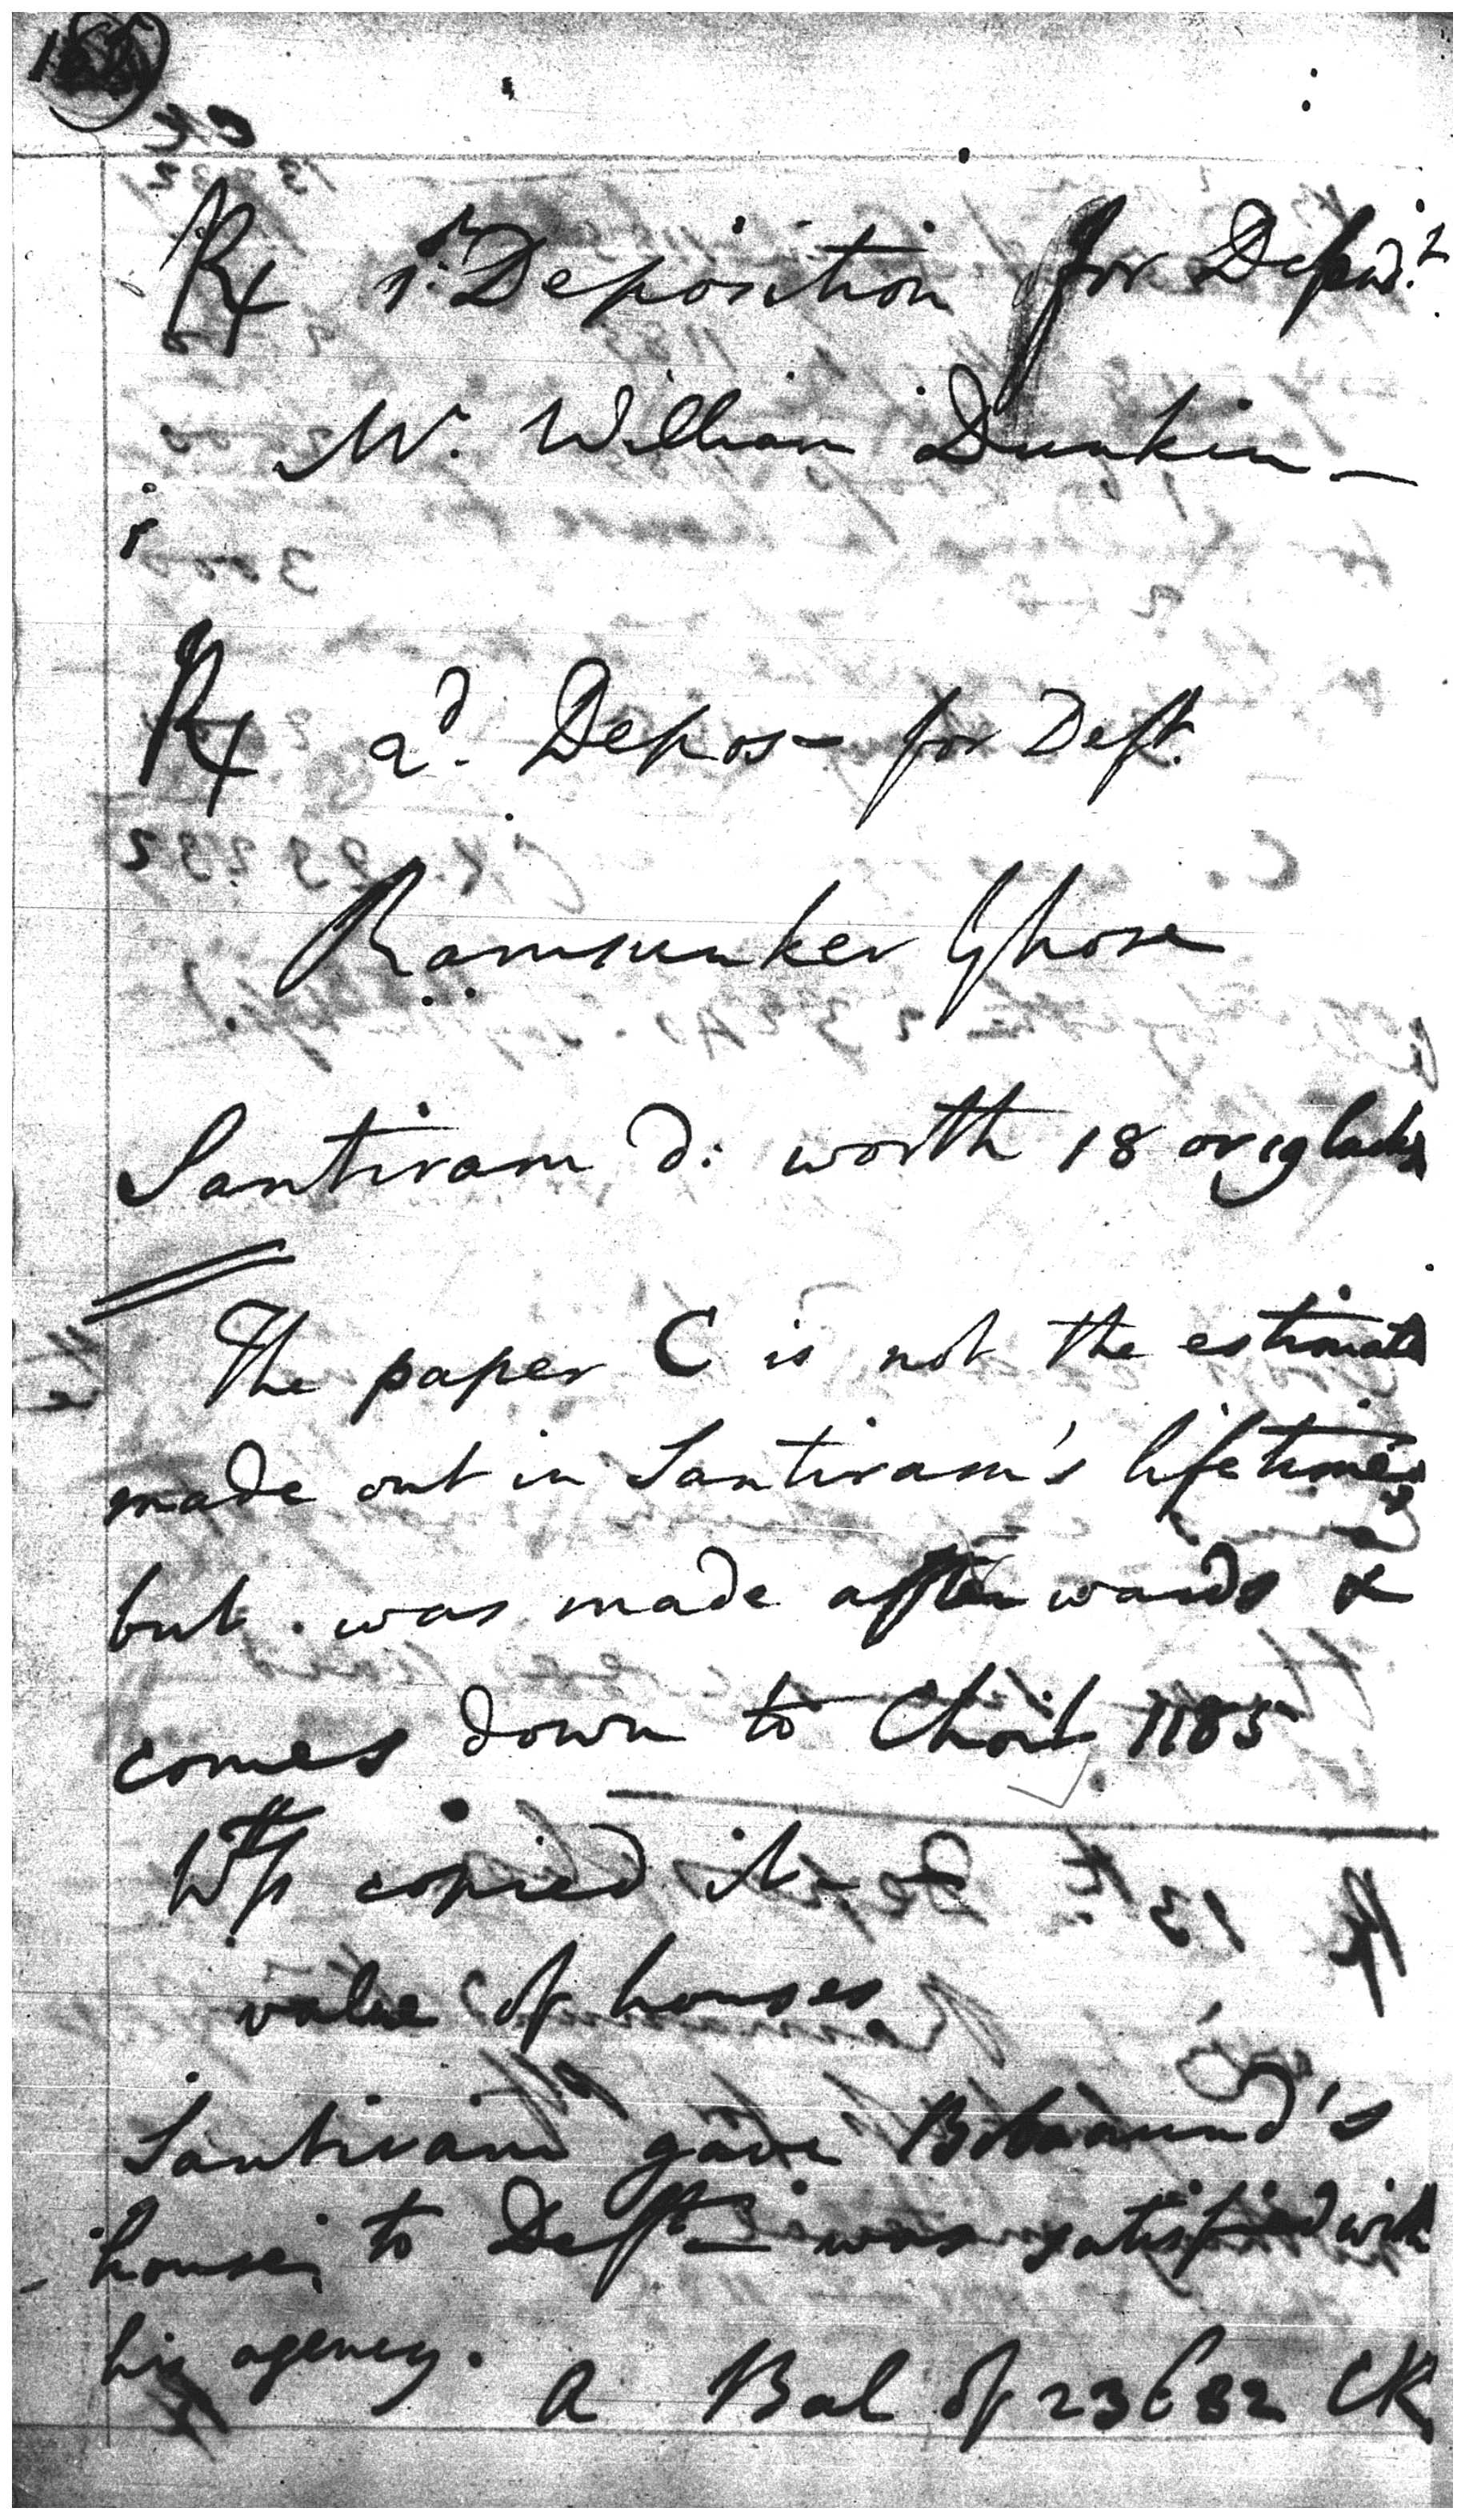 Rx 1st Deposition for Defend.t
Mr. William Dunkin —
Rx 2d. Depos— for Deft.
Ramsunker Ghose
Santiram d: worth 18 or 19 lacks
The paper C is not the estimate
made out in Santiram's lifetime
but was made afterwards &
comes down to Choit 1185
Wts copied it —
value of houses
Santiram gave
house to Deft — was satisfied with
his agency. A Bal of 23 CK